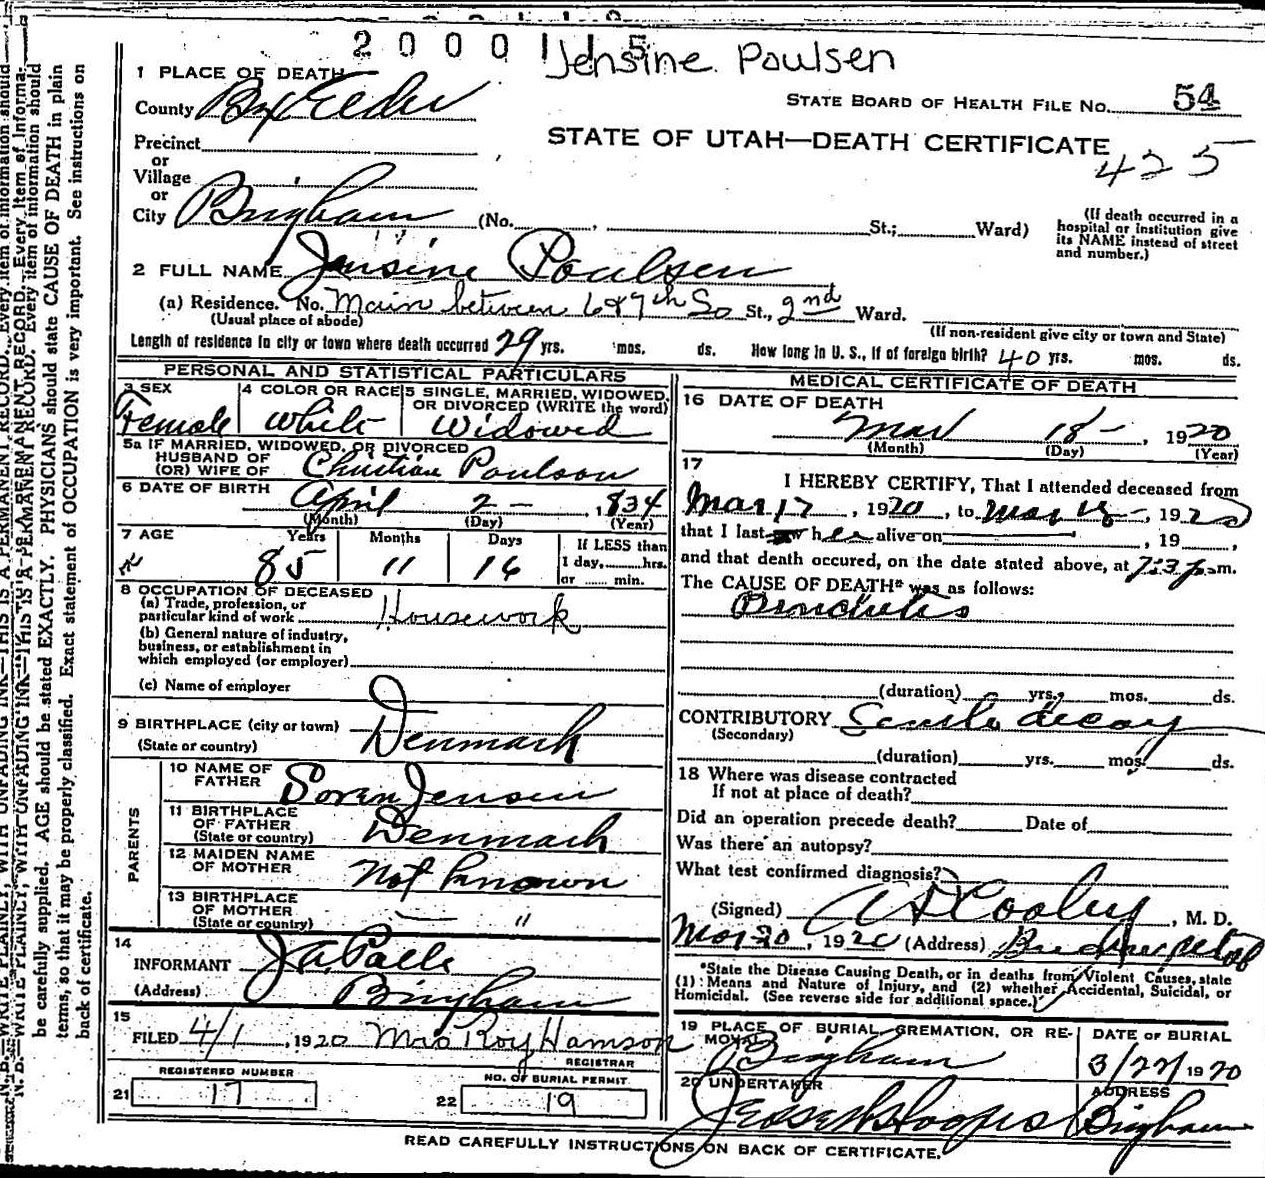 2 0 0 0 1 1 5
Jensine Poulsen
1 PLACE OF DEATH
County Box Elder
STATE BOARD OF HEALTH FILE No. 54
STATE OF UTAH—DEATH CERTIFICATE
425
Precinct
or
Village
or
City Brigham (No. , St.; Ward)
(If death occurred in a
hospital or institution give
its NAME instead of street
and number.)
2 FULL NAME Jensine Poulsen
(a) Residence. No. Main between 6 & 7th So St., 2nd Ward.
(Usual place of abode)
(If non-resident give city or town and State)
Length of residence in city or town where death occurred 29 yrs. mos. ds. How long in U. S., if of foreign birth? 40 yrs. mos. ds.
PERSONAL AND STATISTICAL PARTICULARS
3 SEX
Female
4 COLOR OR RACE
White
5 SINGLE, MARRIED, WIDOWED,
OR DIVORCED (WRITE the word)
Widowed
5a IF MARRIED, WIDOWED, OR DIVORCED
HUSBAND OF
(OR) WIFE OF Christian Poulson
6 DATE OF BIRTH April 2 – , 1834
(Month) (Day) (Year)
7 AGE Years Months Days
85 11 16
If LESS than
1 day, hrs.
or min.
8 OCCUPATION OF DECEASED
(a) Trade, profession, or
particular kind of work Housework
(b) General nature of industry,
business, or establishment in
which employed (or employer)
(c) Name of employer
9 BIRTHPLACE (city or town)
(State or country) Denmark
PARENTS
10 NAME OF
FATHER Soren Jensen
11 BIRTHPLACE
OF FATHER
(State or country) Denmark
12 MAIDEN NAME
OF MOTHER Not known
13 BIRTHPLACE
OF MOTHER
(State or country) — "
14
INFORMANT J. A.
(Address) Brigham
15
FILED 4/1, 1920 Mrs Roy Hamson
REGISTRAR
REGISTERED NUMBER
21 17
NO. OF BURIAL PERMIT
22 19
MEDICAL CERTIFICATE OF DEATH
16 DATE OF DEATH
Mar 18 – , 1920
(Month) (Day) (Year)
17
I HEREBY CERTIFY, That I attended deceased from
Mar 17, 1920, to Mar 18 –, 1920
that I last saw her alive on , 19 ,
and that death occured, on the date stated above, at 7:3 p. m.
The CAUSE OF DEATH* was as follows:
Bronchitis
(duration) yrs. mos. ds.
CONTRIBUTORY Senile decay
(Secondary)
(duration) yrs. mos. ds.
18 Where was disease contracted
If not at place of death?
Did an operation precede death? Date of
Was there an autopsy?
What test confirmed diagnosis?
(Signed) A D Cooley, M. D.
Mar 20, 1920 (Address) Brigham Utah
*State the Disease Causing Death, or in deaths from Violent Causes, state
(1) Means and Nature of Injury, and (2) whether Accidental, Suicidal, or
Homicidal. (See reverse side for additional space.)
19 PLACE OF BURIAL, CREMATION, OR RE-
MOVAL Brigham
DATE OF BURIAL
3/22/1920
20 UNDERTAKER
ADDRESS
Brigham
READ CAREFULLY INSTRUCTIONS ON BACK OF CERTIFICATE.
N. B.—WRITE PLAINLY, WITH UNFADING INK—THIS IS A PERMANENT RECORD. Every item of information should
be carefully supplied. AGE should be stated EXACTLY. PHYSICIANS should state CAUSE OF DEATH in plain
terms, so that it may be properly classified. Exact statement of OCCUPATION is very important. See instructions on
back of certificate.